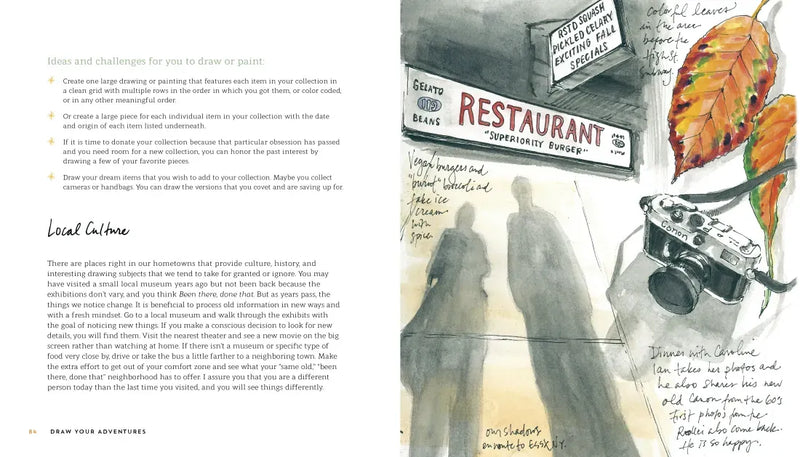 Ideas and challenges for you to draw or paint:
Create one large drawing or painting that features each item in your collection in
a clean grid with multiple rows in the order in which you got them, or color coded,
or in any other meaningful order.
Or create a large piece for each individual item in your collection with the date
and origin of each item listed underneath.
If it is time to donate your collection because that particular obsession has passed
and you need room for a new collection, you can honor the past interest by
drawing a few of your favorite pieces.
Draw your dream items that you wish to add to your collection. Maybe you collect
cameras or handbags. You can draw the versions that you covet and are saving up for.
Local Culture
There are places right in our hometowns that provide culture, history, and
interesting drawing subjects that we tend to take for granted or ignore. You may
have visited a small local museum years ago but not been back because the
exhibitions don't vary, and you think Been there, done that. But as years pass, the
things we notice change. It is beneficial to process old information in new ways and
with a fresh mindset. Go to a local museum and walk through the exhibits with
the goal of noticing new things. If you make a conscious decision to look for new
details, you will find them. Visit the nearest theater and see a new movie on the big
screen rather than watching at home. If there isn't a museum or specific type of
food very close by, drive or take the bus a little farther to a neighboring town. Make
the extra effort to get out of your comfort zone and see what your "same old," "been
there, done that" neighborhood has to offer. I assure you that you are a different
person today than the last time you visited, and you will see things differently.
84 DRAW YOUR ADVENTURES
RSTD SQUASH
PICKLED CELARY
EXCITING FALL
SPECIALS
GELATO
BEANS
RESTAURANT
"SUPERIORITY BURGER"
Colorful leaves
in the area
before the
High St.
Subway.
Vegan burgers and
"burnt" broccoli and
fake ice
cream
with
spice.
Canon
our shadows
en route to Essex, N.Y.
Dinner with Caroline
Ian takes her photos and
he also shares his new
old Canon from the 60's
First photos from the
Rollei also come back.
He is so happy.